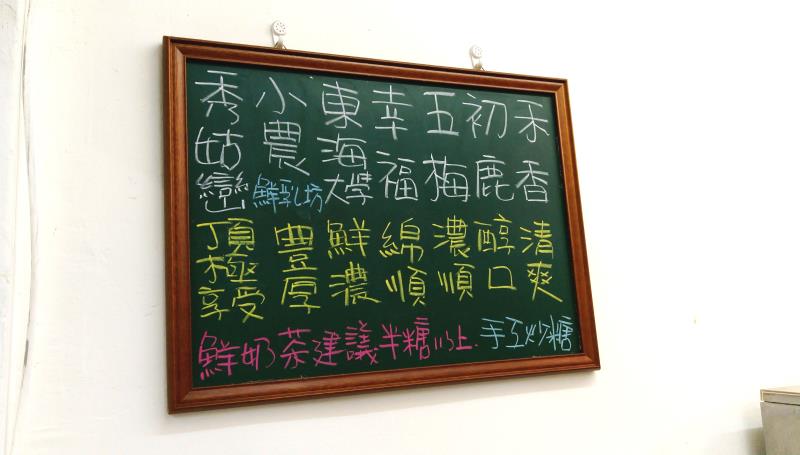 禾香 清爽
初鹿 醇口
五梅 濃順
幸福 綿順
東海大學 鮮濃
小農鮮乳坊 豐厚
秀姑巒 頂極享受
鮮奶茶建議半糖以上.手工炒糖